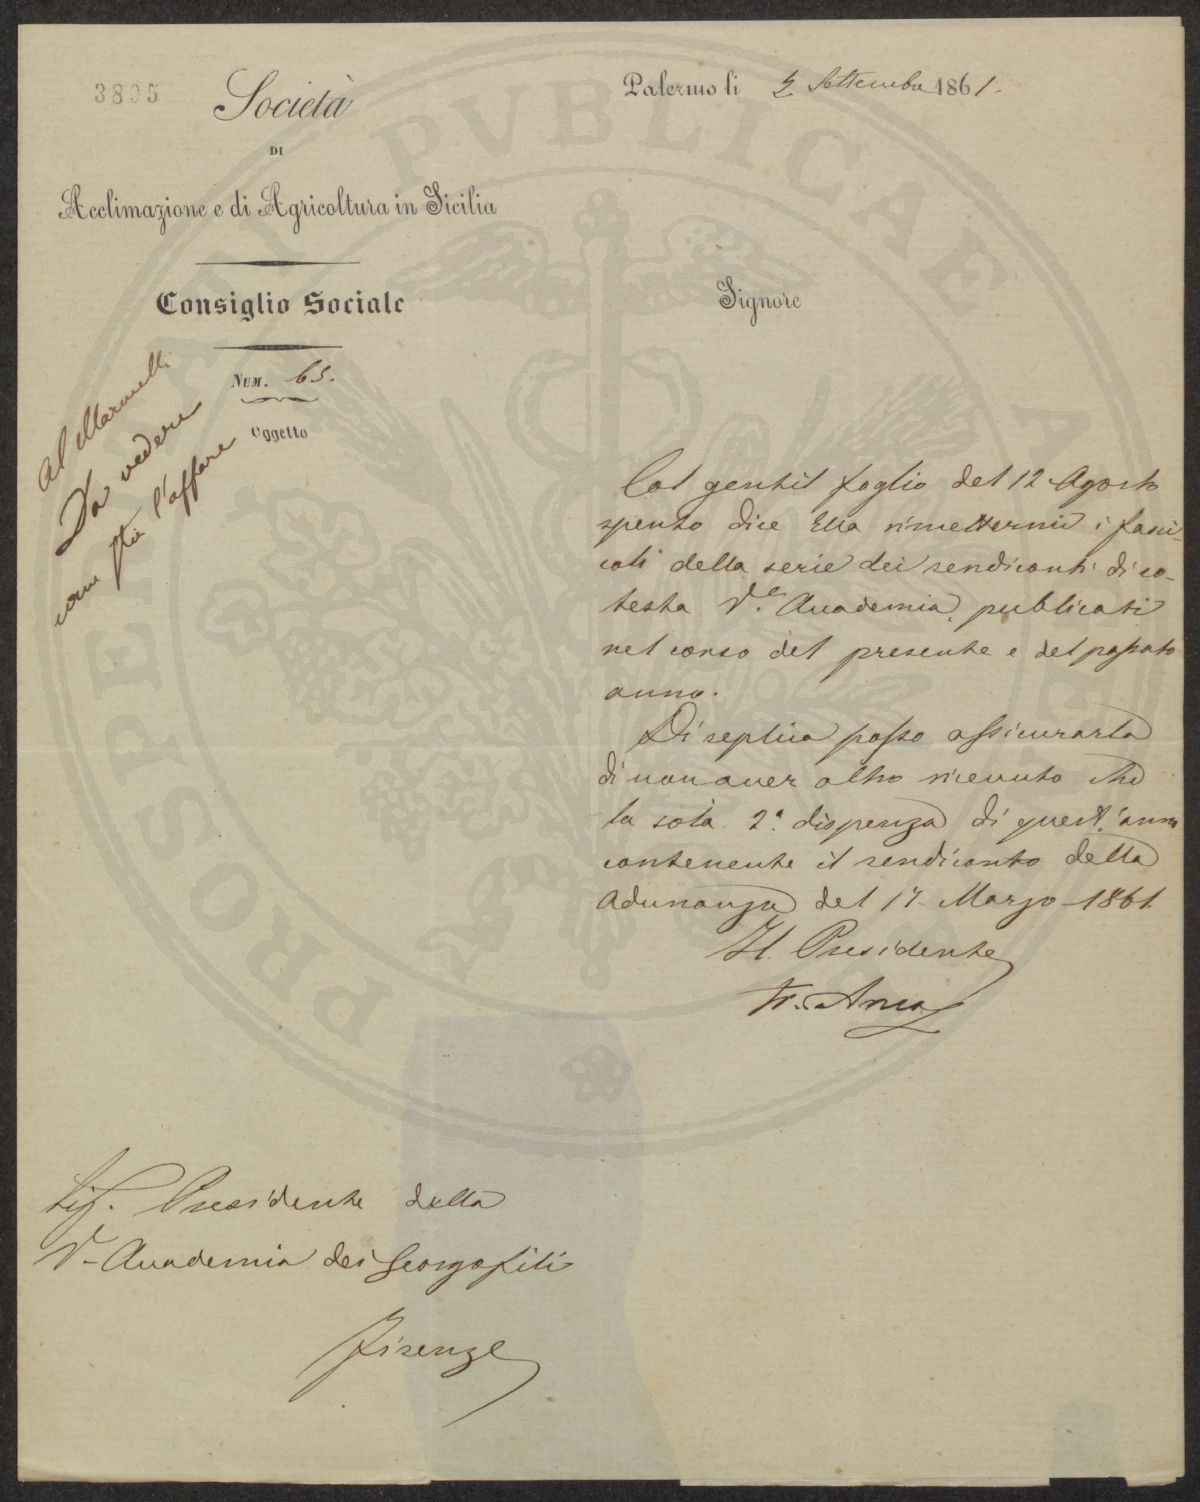 3805
Società
DI
Acclimazione e di Agricoltura in Sicilia
Consiglio Sociale
NUM. 65.
Oggetto
Palermo li Settembre 1861.
Signore
Al Marinelli
Da vedere
come sta l'affare
Col gentil foglio del 12 Agosto
spento dice Ella rimettermi i fasci-
coli della serie dei rendiconti di co-
testa Rle Accademia, publicati
nel corso del presente e del passato
anno.
Di replica posso assicurarla
di non aver altro ricevuto che
la sola 2a. dispenza di quest'anno
contenente il rendiconto della
Adunanza del 17 Marzo 1861
Il Presidente
Fr. Anca
Sig. Presidente della
R. Accademia dei Georgofili
Firenze
PROSPERITATI PVBLICAE AVGENDAE